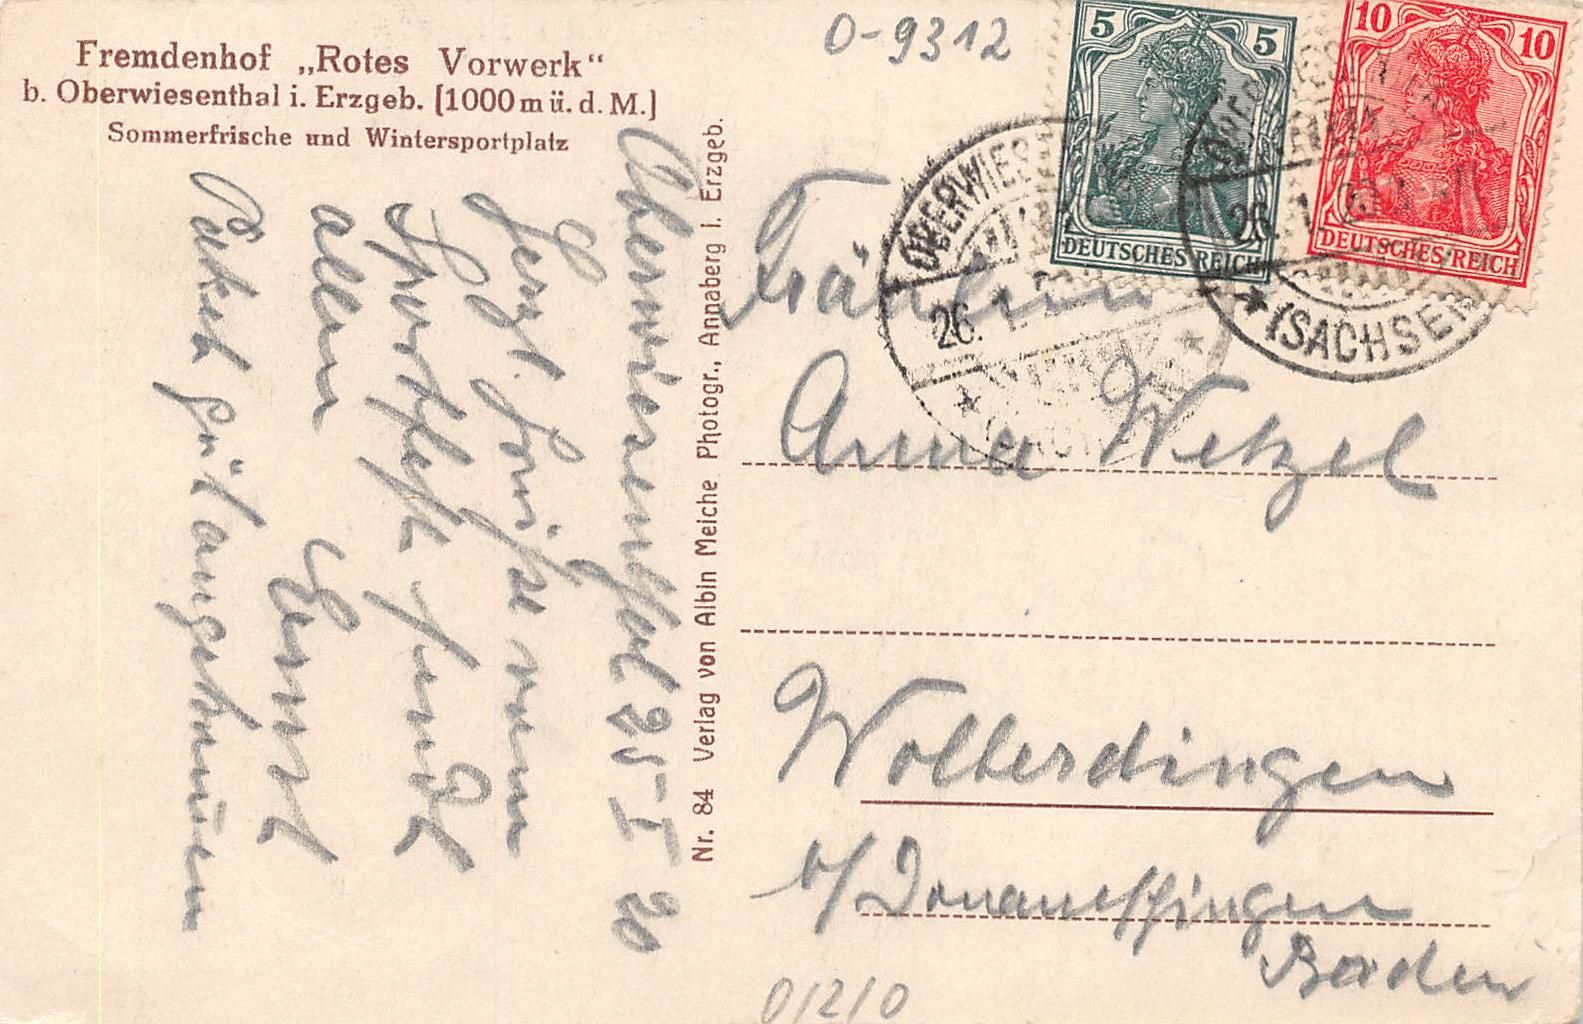 O-9312
Fremdenhof „Rotes Vorwerk“
b. Oberwiesenthal i. Erzgeb. [1000 m ü. d. M.]
Sommerfrische und Wintersportplatz
Oberwiesenthal 25 I 20
Herzl. Grüße vom
Sportfest sendet
allen
Ernst
Paket gut angekommen
Nr. 84 Verlag von Albin Meiche Photogr., Annaberg i. Erzgeb.
5 5
DEUTSCHES REICH
10 10
DEUTSCHES REICH
OBERWIES
26. 1.
26. 1.
(SACHSEN
Fräulein
Anna Wetzel
Wolterdingen
b/Donaueschingen
Baden
0/2/0